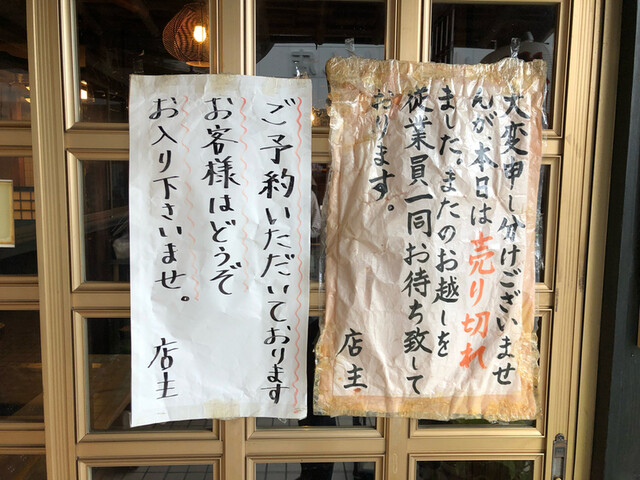 大変申し分けございませ
んが本日は売り切れ
ました。またのお越しを
従業員一同お待ち致して
おります。
店主
ご予約いただいております
お客様はどうぞ
お入り下さいませ。
店主